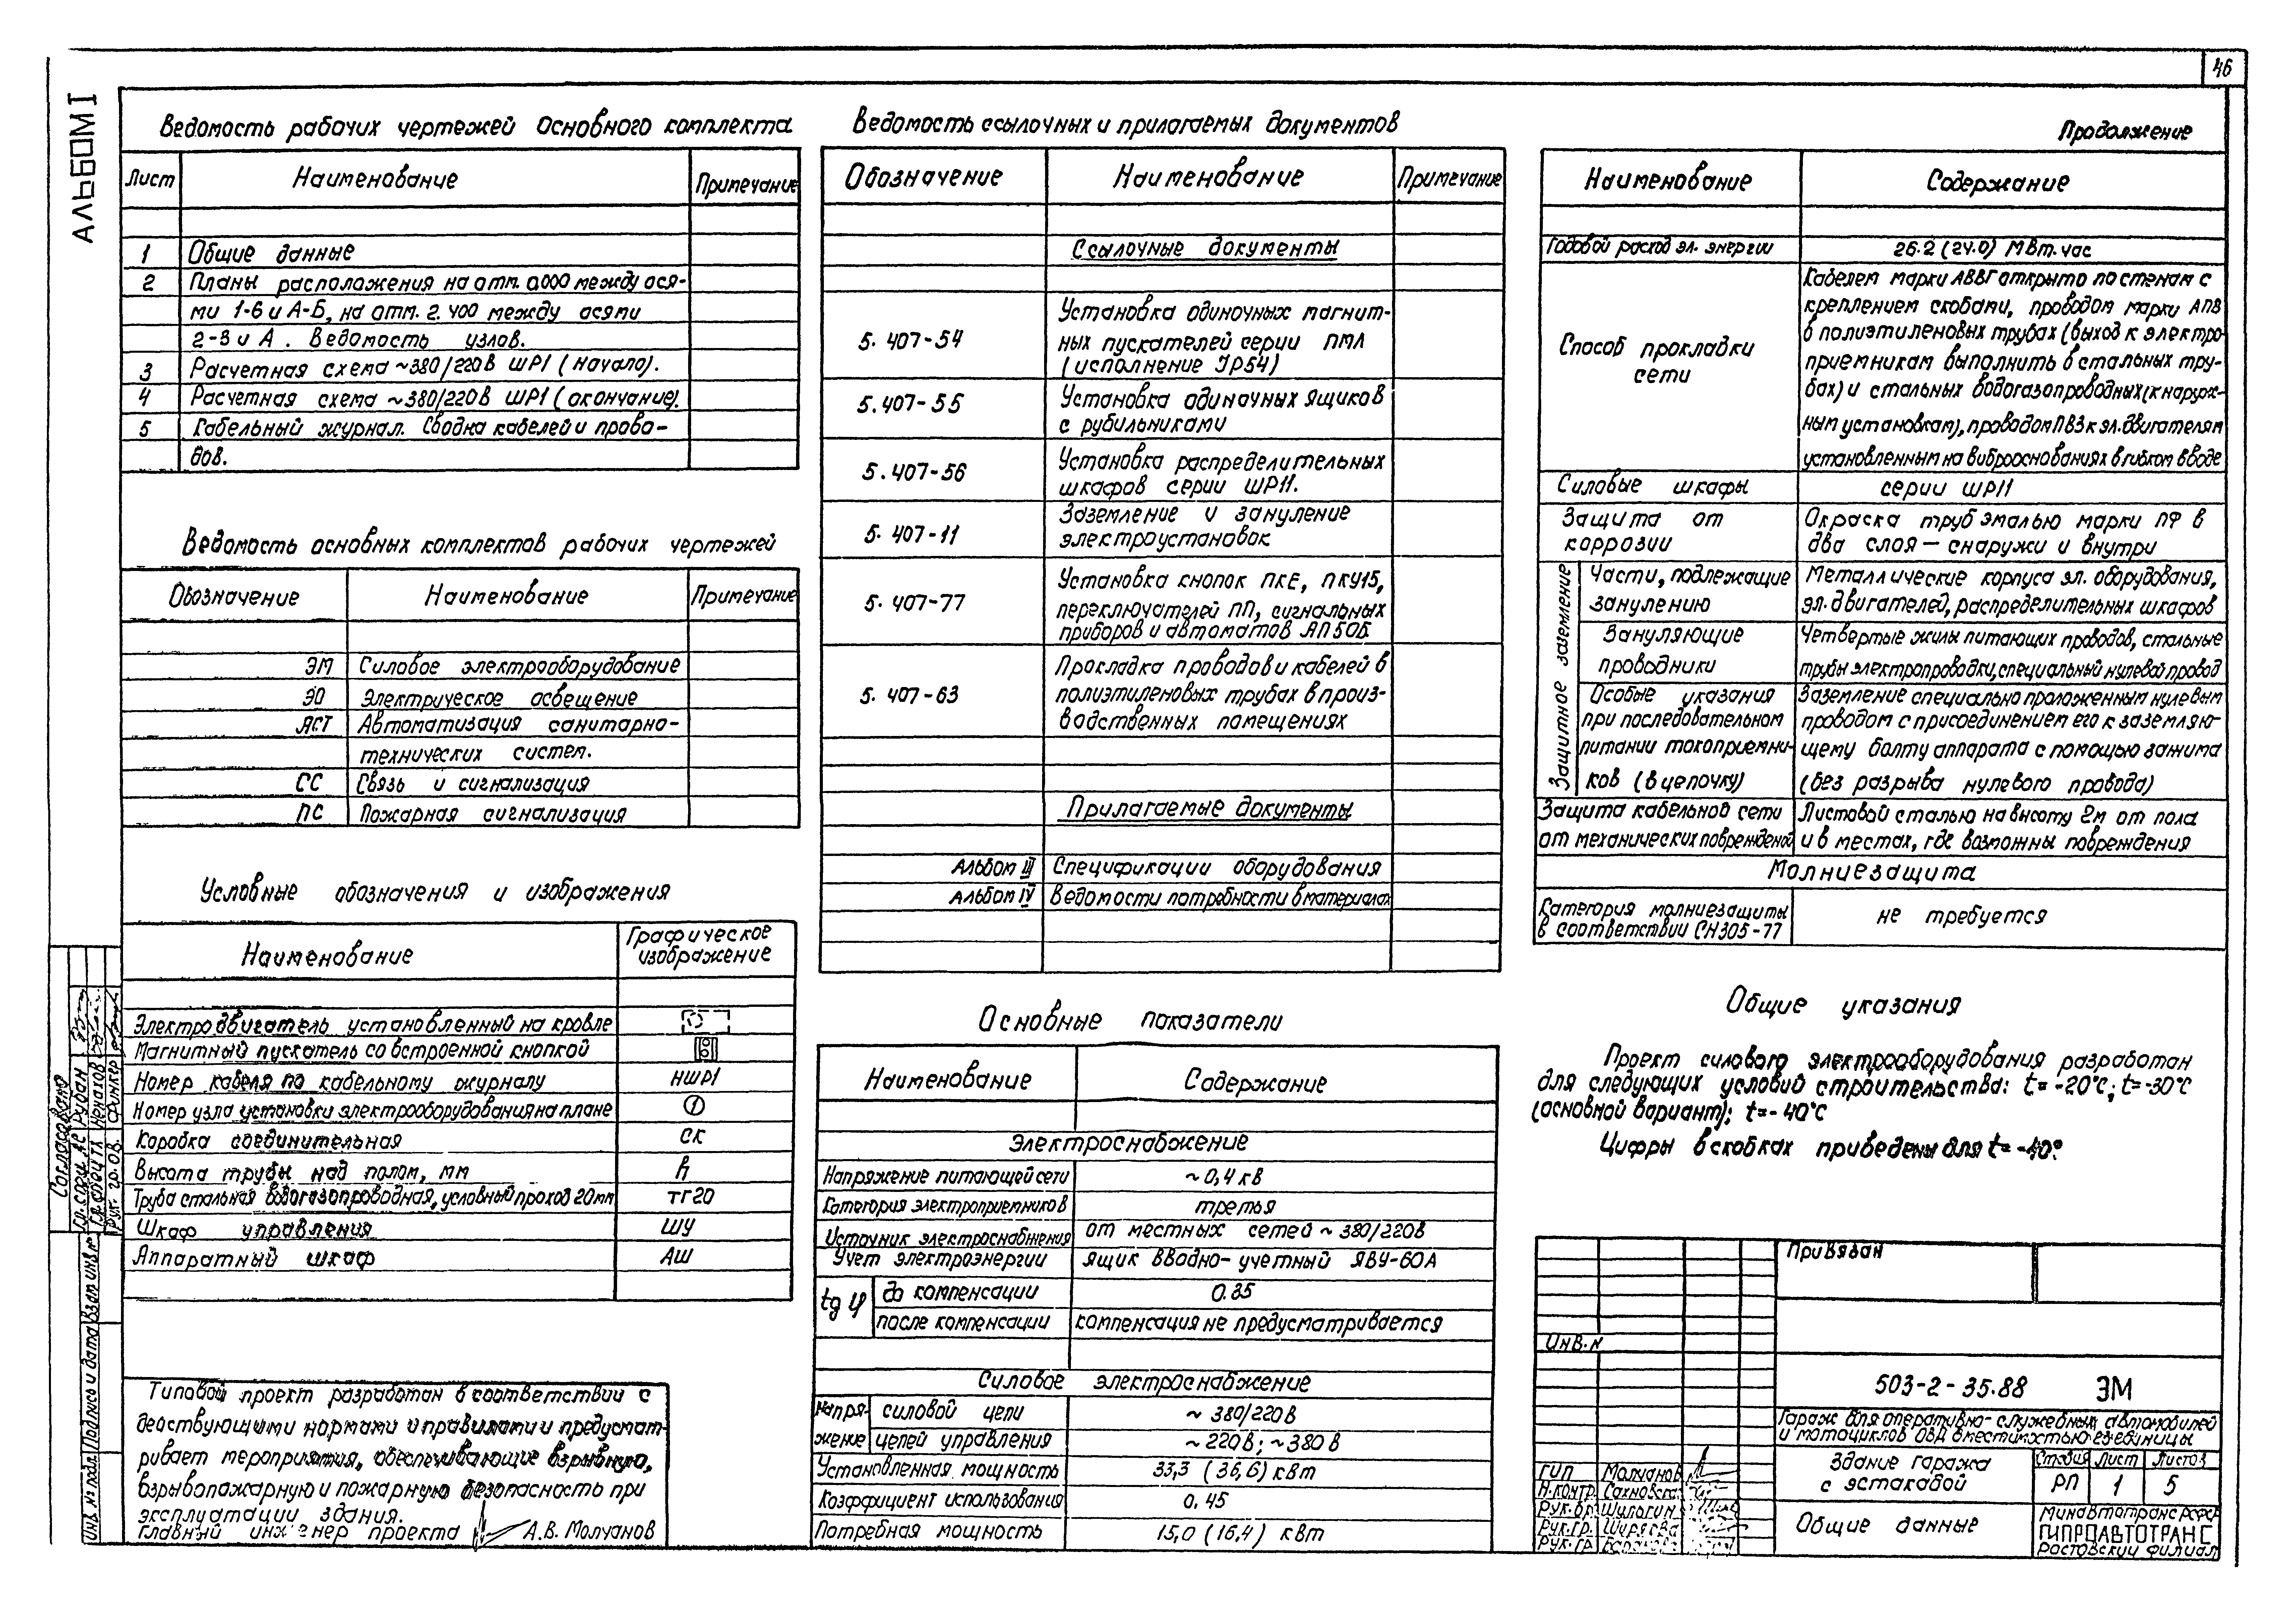 46
АЛЬБОМ I
Ведомость рабочих чертежей основного комплекта
Лист Наименование Примечание
1 Общие данные
2 Планы расположения на отм. 0.000 между ося-
ми 1-6 и А-Б, на отм. 2.400 между осями
2-3 и А. Ведомость узлов.
3 Расчетная схема ~380/220В ШР1 (начало).
4 Расчетная схема ~380/220В ШР1 (окончание).
5 Кабельный журнал. Сводка кабелей и прово-
дов.
Ведомость основных комплектов рабочих чертежей
Обозначение Наименование Примечание
ЭМ Силовое электрооборудование
ЭО Электрическое освещение
АСТ Автоматизация санитарно-
технических систем.
СС Связь и сигнализация
ПС Пожарная сигнализация
Условные обозначения и изображения
Наименование Графическое
изображение
Электродвигатель установленный на кровле
Магнитный пускатель со встроенной кнопкой
Номер кабеля по кабельному журналу НШР1
Номер узла установки электрооборудования на плане 1
Коробка соединительная СК
Высота трубы над полом, мм h
Труба стальная водогазопроводная, условный проход 20мм тг20
Шкаф управления ШУ
Аппаратный шкаф АШ
Типовой проект разработан в соответствии с
действующими нормами и правилами и предусмат-
ривает мероприятия, обеспечивающие взрывную,
взрывопожарную и пожарную безопасность при
эксплуатации здания.
Главный инженер проекта А.В. Молчанов
Ведомость ссылочных и прилагаемых документов
Обозначение Наименование Примечание
Ссылочные документы
5.407-54 Установка одиночных магнит-
ных пускателей серии ПМЛ
(исполнение IP54)
5.407-55 Установка одиночных ящиков
с рубильниками
5.407-56 Установка распределительных
шкафов серии ШР11.
5.407-11 Заземление и зануление
электроустановок
5.407-77 Установка кнопок ПКЕ, ПКУ15,
переключателей ПП, сигнальных
приборов и автоматов АП50Б
5.407-63 Прокладка проводов и кабелей в
полиэтиленовых трубах в произ-
водственных помещениях
Прилагаемые документы
Альбом III Спецификации оборудования
Альбом IV Ведомости потребности в материалах
Основные показатели
Наименование Содержание
Электроснабжение
Напряжение питающей сети ~0,4 кв
Категория электроприемников третья
Источник электроснабжения от местных сетей ~380/220В
Учет электроэнергии ящик вводно-учетный ЯВУ-60А
tg φ до компенсации 0.35
после компенсации компенсация не предусматривается
Силовое электроснабжение
Напря- силовой цепи ~380/220В
жение цепей управления ~220В; ~380В
Установленная мощность 33,3 (36,6) кВт
Коэффициент использования 0,45
Потребная мощность 15,0 (16,4) кВт
Продолжение
Наименование Содержание
Годовой расход эл. энергии 26.2 (24.0) МВт.час
Способ прокладки
сети
Кабелем марки АВВГ открыто по стенам с
креплением скобами, проводом марки АПВ
в полиэтиленовых трубах (выход к электро-
приемникам выполнить в стальных тру-
бах) и стальных водогазопроводных (к наруж-
ным установкам), проводом ПВ3 к эл.двигателям
установленным на виброоснованиях в гибком вводе
Силовые шкафы серии ШР11
Защита от Окраска труб эмалью марки ПФ в
коррозии два слоя — снаружи и внутри
Защитное заземление
Части, подлежащие Металлические корпуса эл. оборудования,
занулению эл.двигателей, распределительных шкафов
Зануляющие Четвертые жилы питающих проводов, стальные
проводники трубы электропроводки, специальный нулевой провод
Особые указания Заземление специально проложенным нулевым
при последовательном проводом с присоединением его к заземляю-
питании токоприемни- щему болту аппарата с помощью зажима
ков (в цепочку) (без разрыва нулевого провода)
Защита кабельной сети Листовой сталью на высоту 2м от пола
от механических повреждений и в местах, где возможны повреждения
Молниезащита
Категория молниезащиты не требуется
в соответствии СН305-77
Общие указания
Проект силового электрооборудования разработан
для следующих условий строительства: t= -20°C; t= -30°C
(основной вариант); t= -40°C
Цифры в скобках приведены для t= -40°.
Привязан
Инв.N
503-2-35.88 ЭМ
Гараж для оперативно-служебных автомобилей
и мотоциклов ОВД вместимостью единицы
Здание гаража
с эстакадой
Стадия Лист Листов
РП 1 5
Общие данные
Минавтотранс РСФСР
ГИПРОАВТОТРАНС
Ростовский филиал
ГИП Молчанов
Н.контр. Сахновская
Рук.бр. Шулогин
Рук.гр.
Рук.гр.
Согласовано
Гл. спец. АС Рудан
Гл. спец. ТХ Ненахов
Рук. гр. ОВ. Функер
Взам инв.№
Подпись и дата
Инв. № подл.